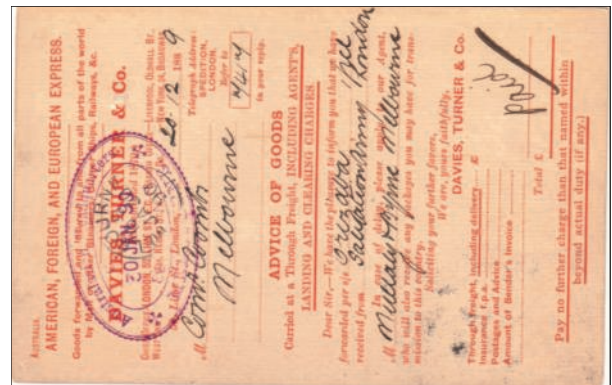 AUSTRALIA.
AMERICAN, FOREIGN, AND EUROPEAN EXPRESS.
Goods forwarded and from all parts of the world
by Railways, &c.
DAVIES, TURNER & Co.
LONDON
LIVERPOOL, OLDHALL ST.
NEW YORK, BROADWAY
London, 20·12 1889
Australian
30 JAN 90
Telegraph Address:
SPEDITION,
LONDON.
Refer to
in your reply.
M Comr Coombs
Melbourne
ADVICE OF GOODS
Carried at a Through Freight, INCLUDING AGENT'S,
LANDING AND CLEARING CHARGES.
Dear Sir,—We have the pleasure to inform you that we have
forwarded per s/s Orizaba Dec
received from Salvation Army London
In case of delay please apply to our Agent,
M Mullaly & Byrne Melbourne
who will also receive any packages you may have for trans-
mission to this country.
Soliciting your further favors,
We are, yours faithfully,
DAVIES, TURNER & Co.
Through freight, including delivery £
Insurance f.p.a.
Postages and Advice
Amount of Sender's Invoice
Paid
Total £
Pay no further charge than that named within
beyond actual duty (if any.)